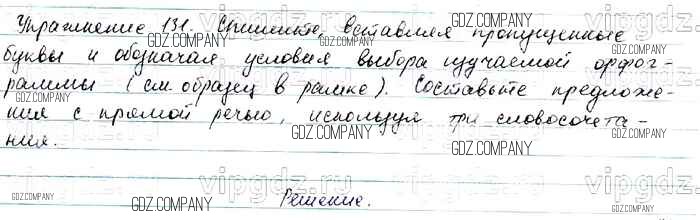 Упражнение 131. Спишите, вставляя пропущенные
буквы и обозначая условия выбора изучаемой орфог-
раммы (см. образец в рамке). Составьте предложе-
ния с прямой речью, используя три словосочета-
ния.
Решение.
GDZ.COMPANY
vipgdz.ru